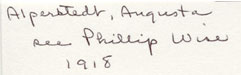 Alperstedt, Augusta
see Phillip Wise
1918